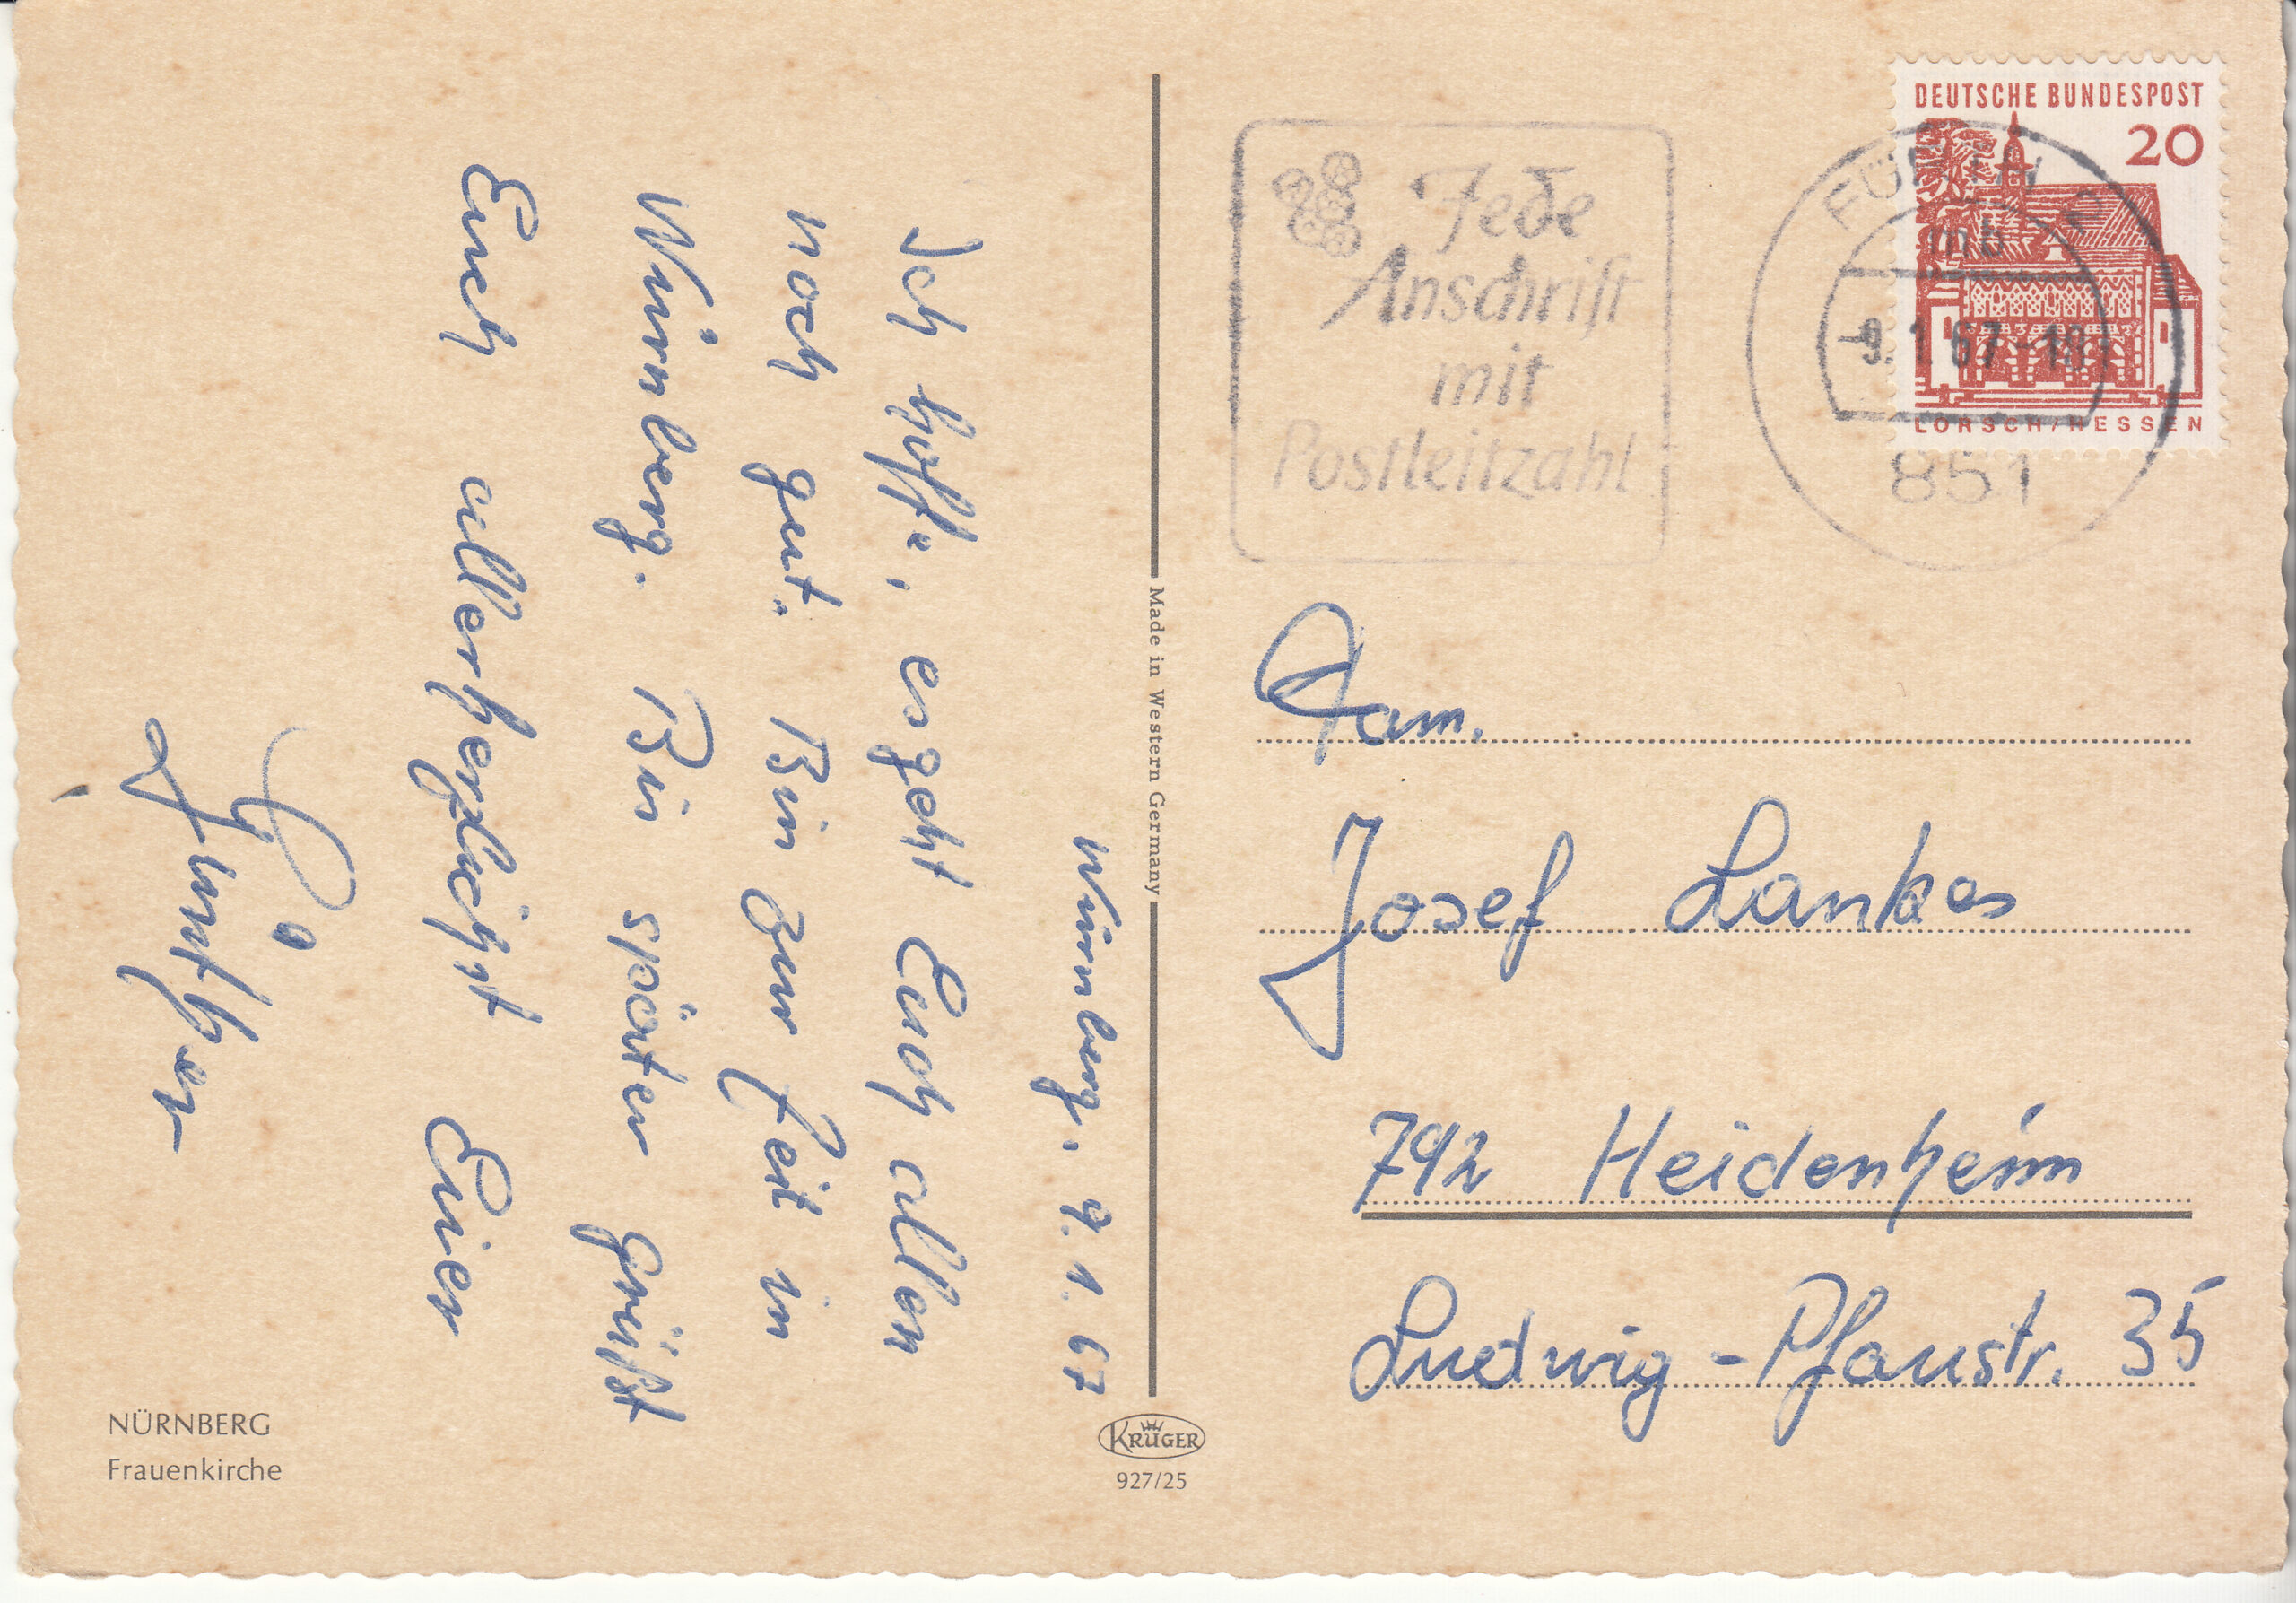 Nürnberg, 9.1.67
Ich hoffe, es geht Euch allen
noch gut. Bin zur Zeit in
Nürnberg. Bis später grüßt
Euch allerherzlichst Euer
Günther
NÜRNBERG
Frauenkirche
Made in Western Germany
KRÜGER
927/25
Jede
Anschrift
mit
Postleitzahl
DEUTSCHE BUNDESPOST
20
LORSCH/HESSEN
FÜRTH
mb
-9.1.67-18
851
Fam.
Josef Lankes
792 Heidenheim
Ludwig-Pfaustr. 35